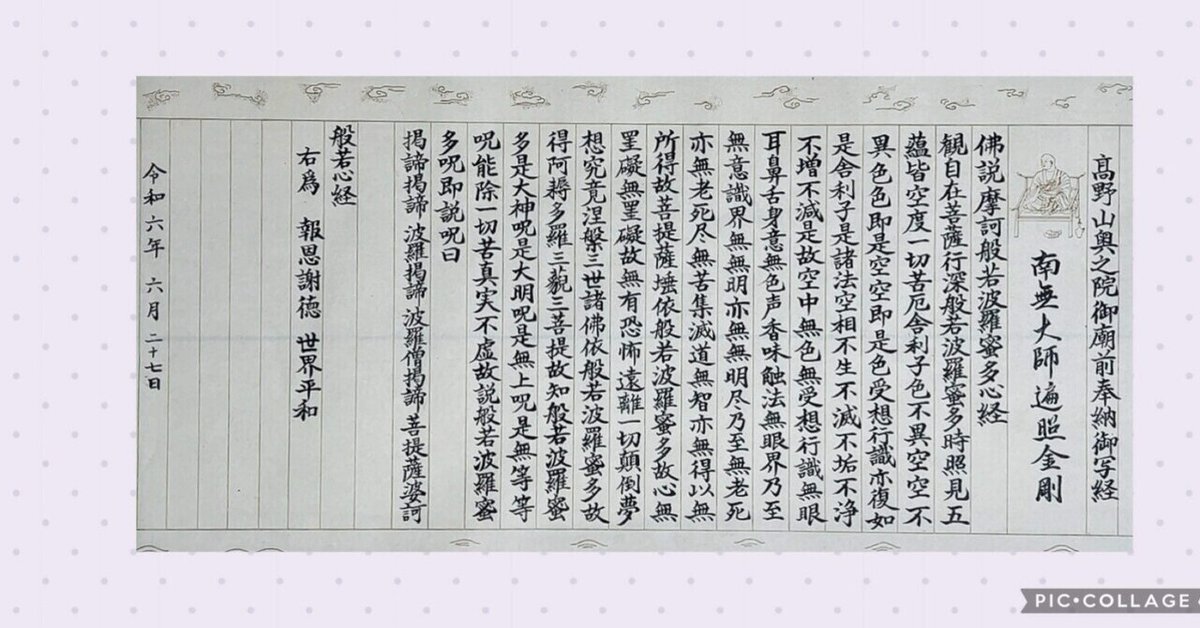 高野山奥之院御廟前奉納御写経
南無大師遍照金剛
佛説摩訶般若波羅蜜多心経
観自在菩薩行深般若波羅蜜多時照見五
蘊皆空度一切苦厄舎利子色不異空空不
異色色即是空空即是色受想行識亦復如
是舎利子是諸法空相不生不滅不垢不浄
不増不減是故空中無色無受想行識無眼
耳鼻舌身意無色声香味触法無眼界乃至
無意識界無無明亦無無明尽乃至無老死
亦無老死尽無苦集滅道無智亦無得以無
所得故菩提薩埵依般若波羅蜜多故心無
罣礙無罣礙故無有恐怖遠離一切顛倒夢
想究竟涅槃三世諸佛依般若波羅蜜多故
得阿耨多羅三藐三菩提故知般若波羅蜜
多是大神呪是大明呪是無上呪是無等等
呪能除一切苦真実不虚故説般若波羅蜜
多呪即説呪曰
掲諦掲諦 波羅掲諦 波羅僧掲諦 菩提薩婆訶
般若心経
右為 報恩謝徳 世界平和
令和六年 六月 二十七日
PIC•COLLAGE